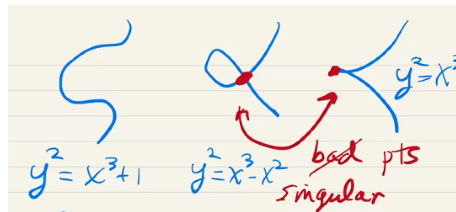 y² = x³
y² = x³+1
y² = x³-x²
bad pts
singular